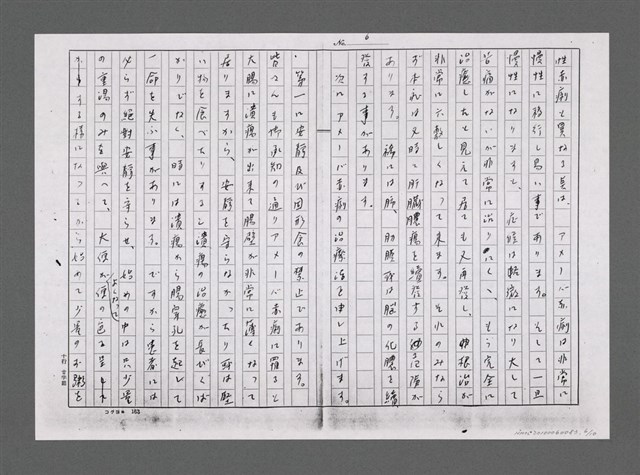 No. 6
性赤痢と異なる点は、アメーバ赤痢は非常に
慢性に移行し易い事であります。そして一旦
慢性になりますと、症状は軽微になり大して
苦痛がないが非常に治りにくく、もう完全に
治癒したと見えて居ても又再発し、根治が
非常に六ヶ敷しくなって来ます。それのみなら
ず本病は又時々肝臓膿瘍を続発する
あります。稀には肺、肋膜或は脳の化膿を続
発する事があります。
次にアメーバ赤痢の治療法を申し上げます。
第一に安静及び固形食の禁止であります。
皆さんも御承知の通りアメーバ赤痢に罹ると
大腸に潰瘍が出来て腸壁が非常に薄くなって
居りますから、安静を守らなかったり或は堅
い物を食べたりすると潰瘍の治癒が長びくば
かりでなく、時には潰瘍から腸穿孔を起して
一命を失ふ事があります。ですから患者には
必らず絶対安静を守らせ、始めの中は只少量
の重湯のみを与へて、大便が
便の色を呈
する様になってから始めて少量のお粥を
コクヨ 162